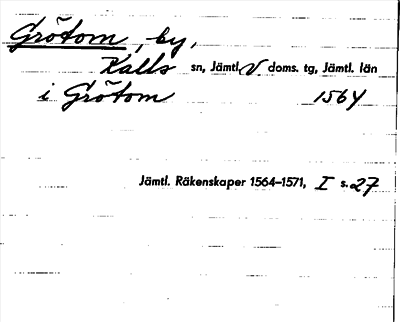 Grötom, by,
Kalls sn, Jämtl. V. doms. tg, Jämtl. län
i Grötom 1564
Jämtl. Räkenskaper 1564–1571, I s. 27